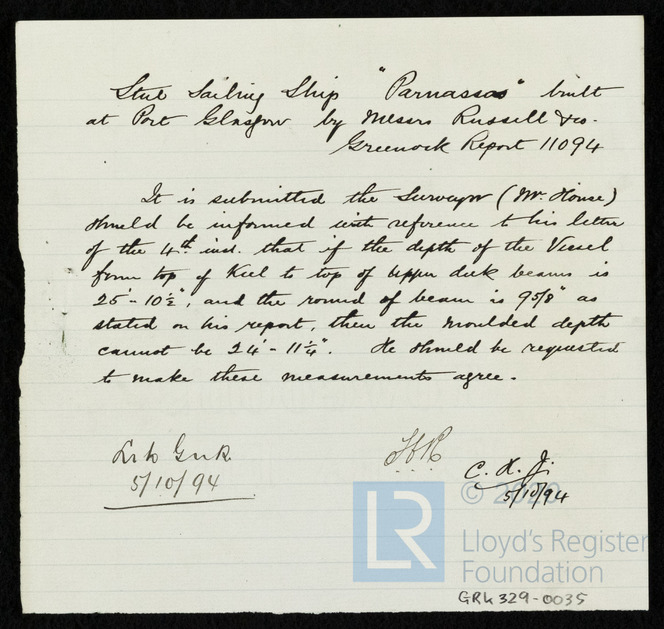 Steel Sailing Ship "Parnassos" built
at Port Glasgow by Messrs Russell & Co.
Greenock Report 11094
It is submitted the Surveyor (Mr. House)
should be informed with reference to his letter
of the 4th inst. that if the depth of the Vessel
from top of Keel to top of upper deck beams is
25'-10½", and the round of beam is 9 5/8" as
stated on his report, then the moulded depth
cannot be 24'-11¼". He should be requested
to make these measurements agree.
5/10/94
5/10/94
© 2020
LR
Lloyd's Register
Foundation
GRK329-0035